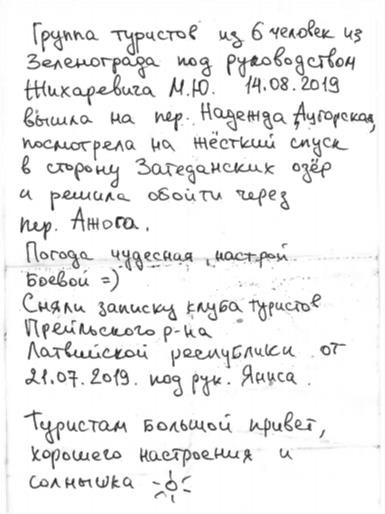 Группа туристов из 6 человек из
Зеленограда под руководством
Жихаревича М.Ю. 14.08.2019
вышла на пер. Надежда Аугорская,
посмотрела на жёсткий спуск
в сторону Загеданских озёр
и решила обойти через
пер. Ажога.
Погода чудесная, настрой
Боевой =)
Сняли записку клуба туристов
Прейльского р-на
Латвийской республики от
21.07.2019. под рук. Яниса.
Туристам большой привет,
хорошего настроения и
солнышка